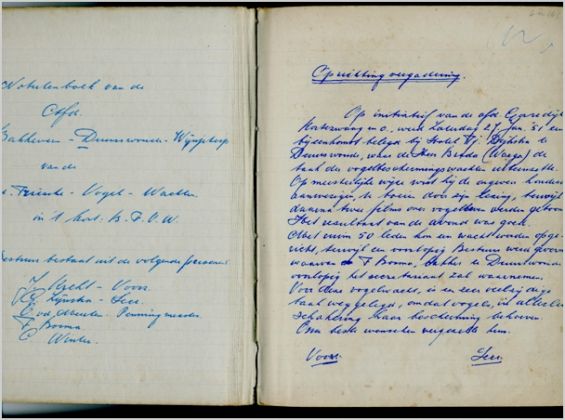 Notulenboek van de
Afd.
Bakkeveen - Duurswoude - Wijnjeterp
van de
Friesche - Vogel - Wachten
in 't kort: B. F. V. W.
Bestuur bestaat uit de volgende personen
Voorz.
Secr.
Penningmeester
F Bosma
Oprichtingsvergadering.
Op initiatief van de afd Gorredijk
Kortezwaag e. o. werd Zaterdag 27 Jan. '51 een
bijeenkomst belegd bij Hotel Dijkstra te
Duurswoude, waar de Heer
taak der vogelbeschermingswachten uiteenzette.
Op meesterlijke wijze wist hij de ongeveer honderd
aanwezigen te boeien door zijn lezing, terwijl
daarna twee films over vogelleven werden getoond
Het resultaat van de avond was goed.
Met ruim 50 leden kon een wacht worden opge-
richt, terwijl een voorlopig Bestuur werd gevormd
waarvan F Bosma, te Duurswoude
voorlopig het secretariaat zal waarnemen.
Voor deze vogelwacht is een veelzijdige
taak weggelegd, omdat vogels in allerlei
schakering haar bescherming behoeven.
Onze beste wensen vergezellen hen.
Voorz. Secr.